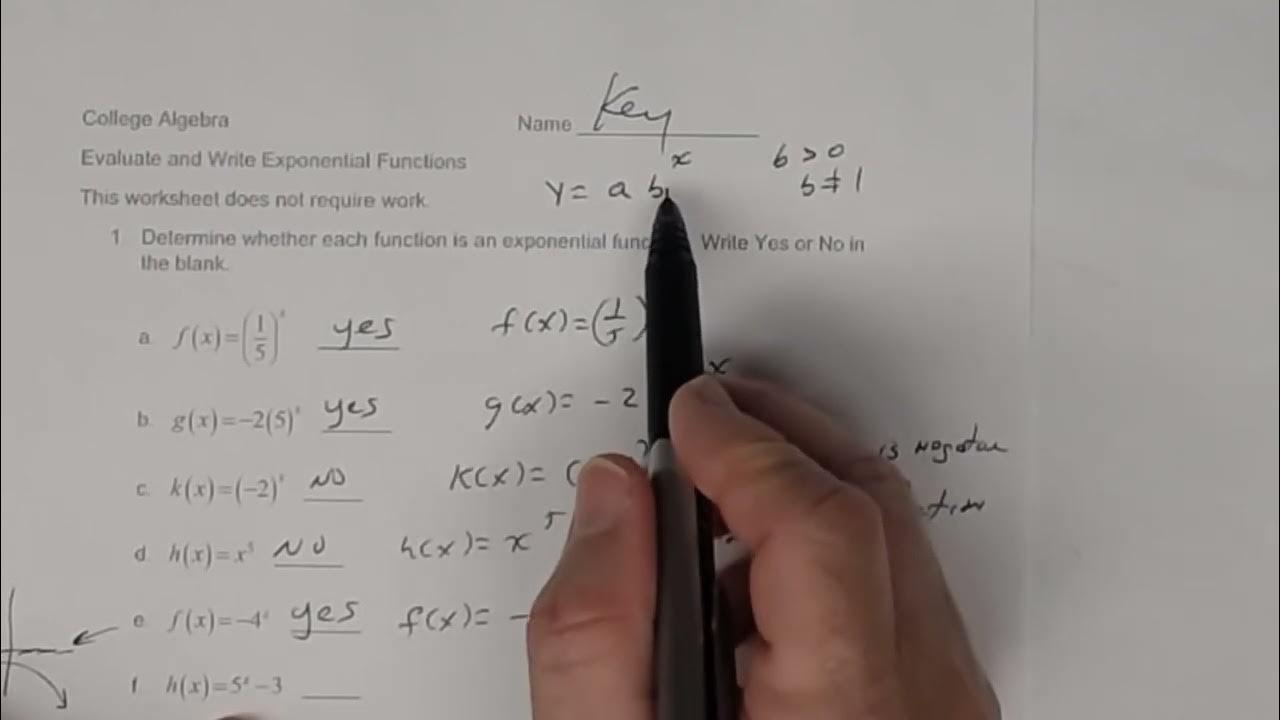 College Algebra
Name Key
Evaluate and Write Exponential Functions
y = a b^x
b > 0
b ≠ 1
This worksheet does not require work.
1. Determine whether each function is an exponential func Write Yes or No in
the blank.
a. f(x)=(1/5)^x yes f(x)=(1/5)
b. g(x)=-2(5)^x yes g(x)= -2 x
c. k(x)=(-2)^x NO k(x)= ( is negative
d. h(x)=x^5 NO h(x)= x^5
e. f(x)=-4^x yes f(x)= -
f. h(x)=5^x-3